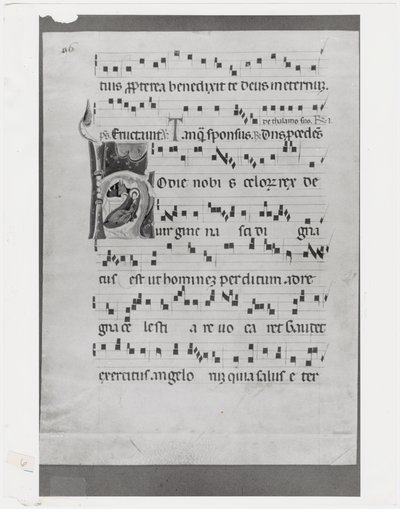 tuis propterea benedixit te deus in eternuz.
de thalamo suo.
Eructuat Tamq̃ sponsus. dns pcedẽs
odie nobis celorz rex de
uirgine nasci di gna
tus est ut hominez perditum ad re
gna ce lesti a re uo ca ret Gaudet
exercitus angelo rum quia salus e ter
6